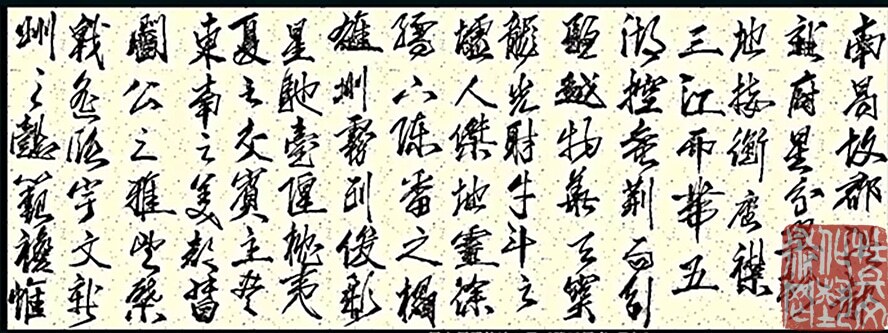 南昌故郡
新府星分
地接衡廬襟
三江而帶五
湖控蠻荊而引
甌越物華天寶
龍光射牛斗之
墟人傑地靈徐
孺下陳蕃之榻
雄州霧列俊彩
星馳臺隍枕夷
夏之交賓主盡
東南之美都督
閻公之雅望棨
戟遙臨宇文新
州之懿範襜帷